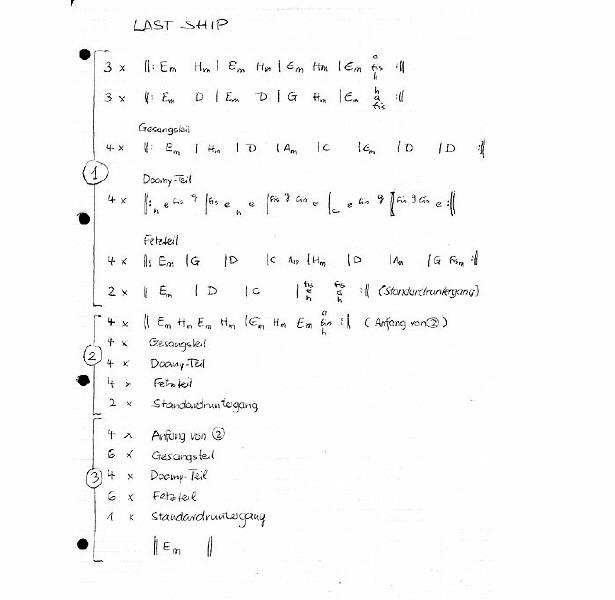 LAST SHIP
3 x ‖: Em Hm | Em Hm | Em Hm | Em a fis h :‖
3 x ‖: Em D | Em D | G Hm | Em h a fis :‖
Gesangsteil
4 x ‖: Em | Hm | D | Am | C | Em | D | D :‖
Doomy-Teil
1
4 x ‖: h e fis g | fis e h e | fis g fis e | c e fis g ‖ fis g fis e :‖
Fetzteil
4 x ‖: Em | G | D | C Am | Hm | D | Am | G Fism :‖
2 x ‖ Em | D | C | fis e h fis a h :‖ (Standardruntergang)
4 x ‖ Em Hm Em Hm | Em Hm Em a fis h :‖ (Anfang von 2)
4 x Gesangsteil
2
4 x Doomy-Teil
4 x Fetzteil
2 x Standardruntergang
4 x Anfang von 2
6 x Gesangsteil
3 4 x Doomy-Teil
6 x Fetzteil
1 x Standardruntergang
‖ Em ‖